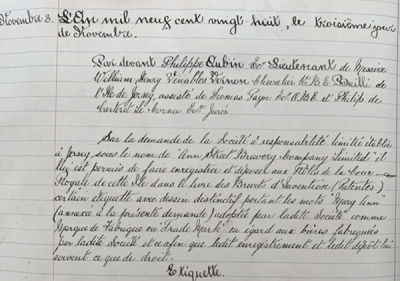 Novembre 3. L'An mil neuf cent vingt huit, le troisième jour
de Novembre.
Par devant Philippe Aubin Ecr. Lieutenant de Messire
William Henry Venables Vernon Chevalier K.B.E. Bailli de
l'Ile de Jersey, assisté de Thomas Payn Ecr. O.B.E. et Philip de
Carteret Le Cornu Ecr. Jurés.
Sur la demande de la Société à responsabilité limitée établie
à Jersey sous le nom de "Ann Street Brewery Company Limited" il
lui est permis de faire enregistrer et déposer aux Rôles de la Cour
Royale de cette Ile dans le livre des Brevets d'Invention (Patentes)
certain étiquette avec dessin distinctif portant les mots "Mary Ann"
(annexée à la présente demande) adoptée par ladite Société comme
Marque de Fabrique ou "Trade Mark" eu égard aux bières fabriquées
par ladite Société et ce afin que ledit enregistrement et ledit dépôt lui
servent ce que de droit.
Etiquette.